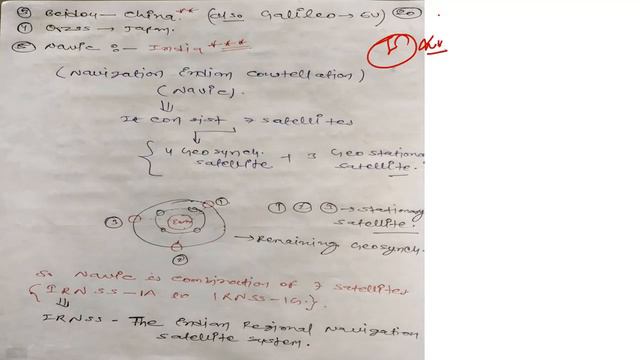 ③ Beidou — China ** (also Galileo → EU) EU
④ Qzss → Japan.
⑤ Navic :- India ***
(Navigation Indian Constellation)
(Navic).
It consist 7 satellites
4 Geosynch. satellite + 3 Geostationa satellite.
① ② ③ → stationary satellite.
Earth
① ② ③
→ Remaining Geosynch.
So Navic is combination of 7 satellites
{IRNSS-1A to IRNSS-1G}.
IRNSS - The Indian Regional Navigation
satellite system.